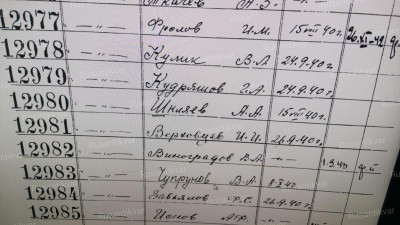 Ткачев
12977 —"— Фролов И.М. 15/VIII 40г. 26.XI-42
12978 —"— Кумик В.А 24.9.40г.
12979 —"— Кудряшов Г.А. 24.9.40г.
12980 —"— Шиляев А.А. 15/VIII 40г.
12981 —"— Верховцев И.И. 26.9.40г.
12982 —"— Виноградов В.А. —"— 1.3.43
12983 —"— Чупрунов В.А. 8.X.40
12984 —"— Завьялов 26.9.40г.
12985 Ионов А.Ф. —"—